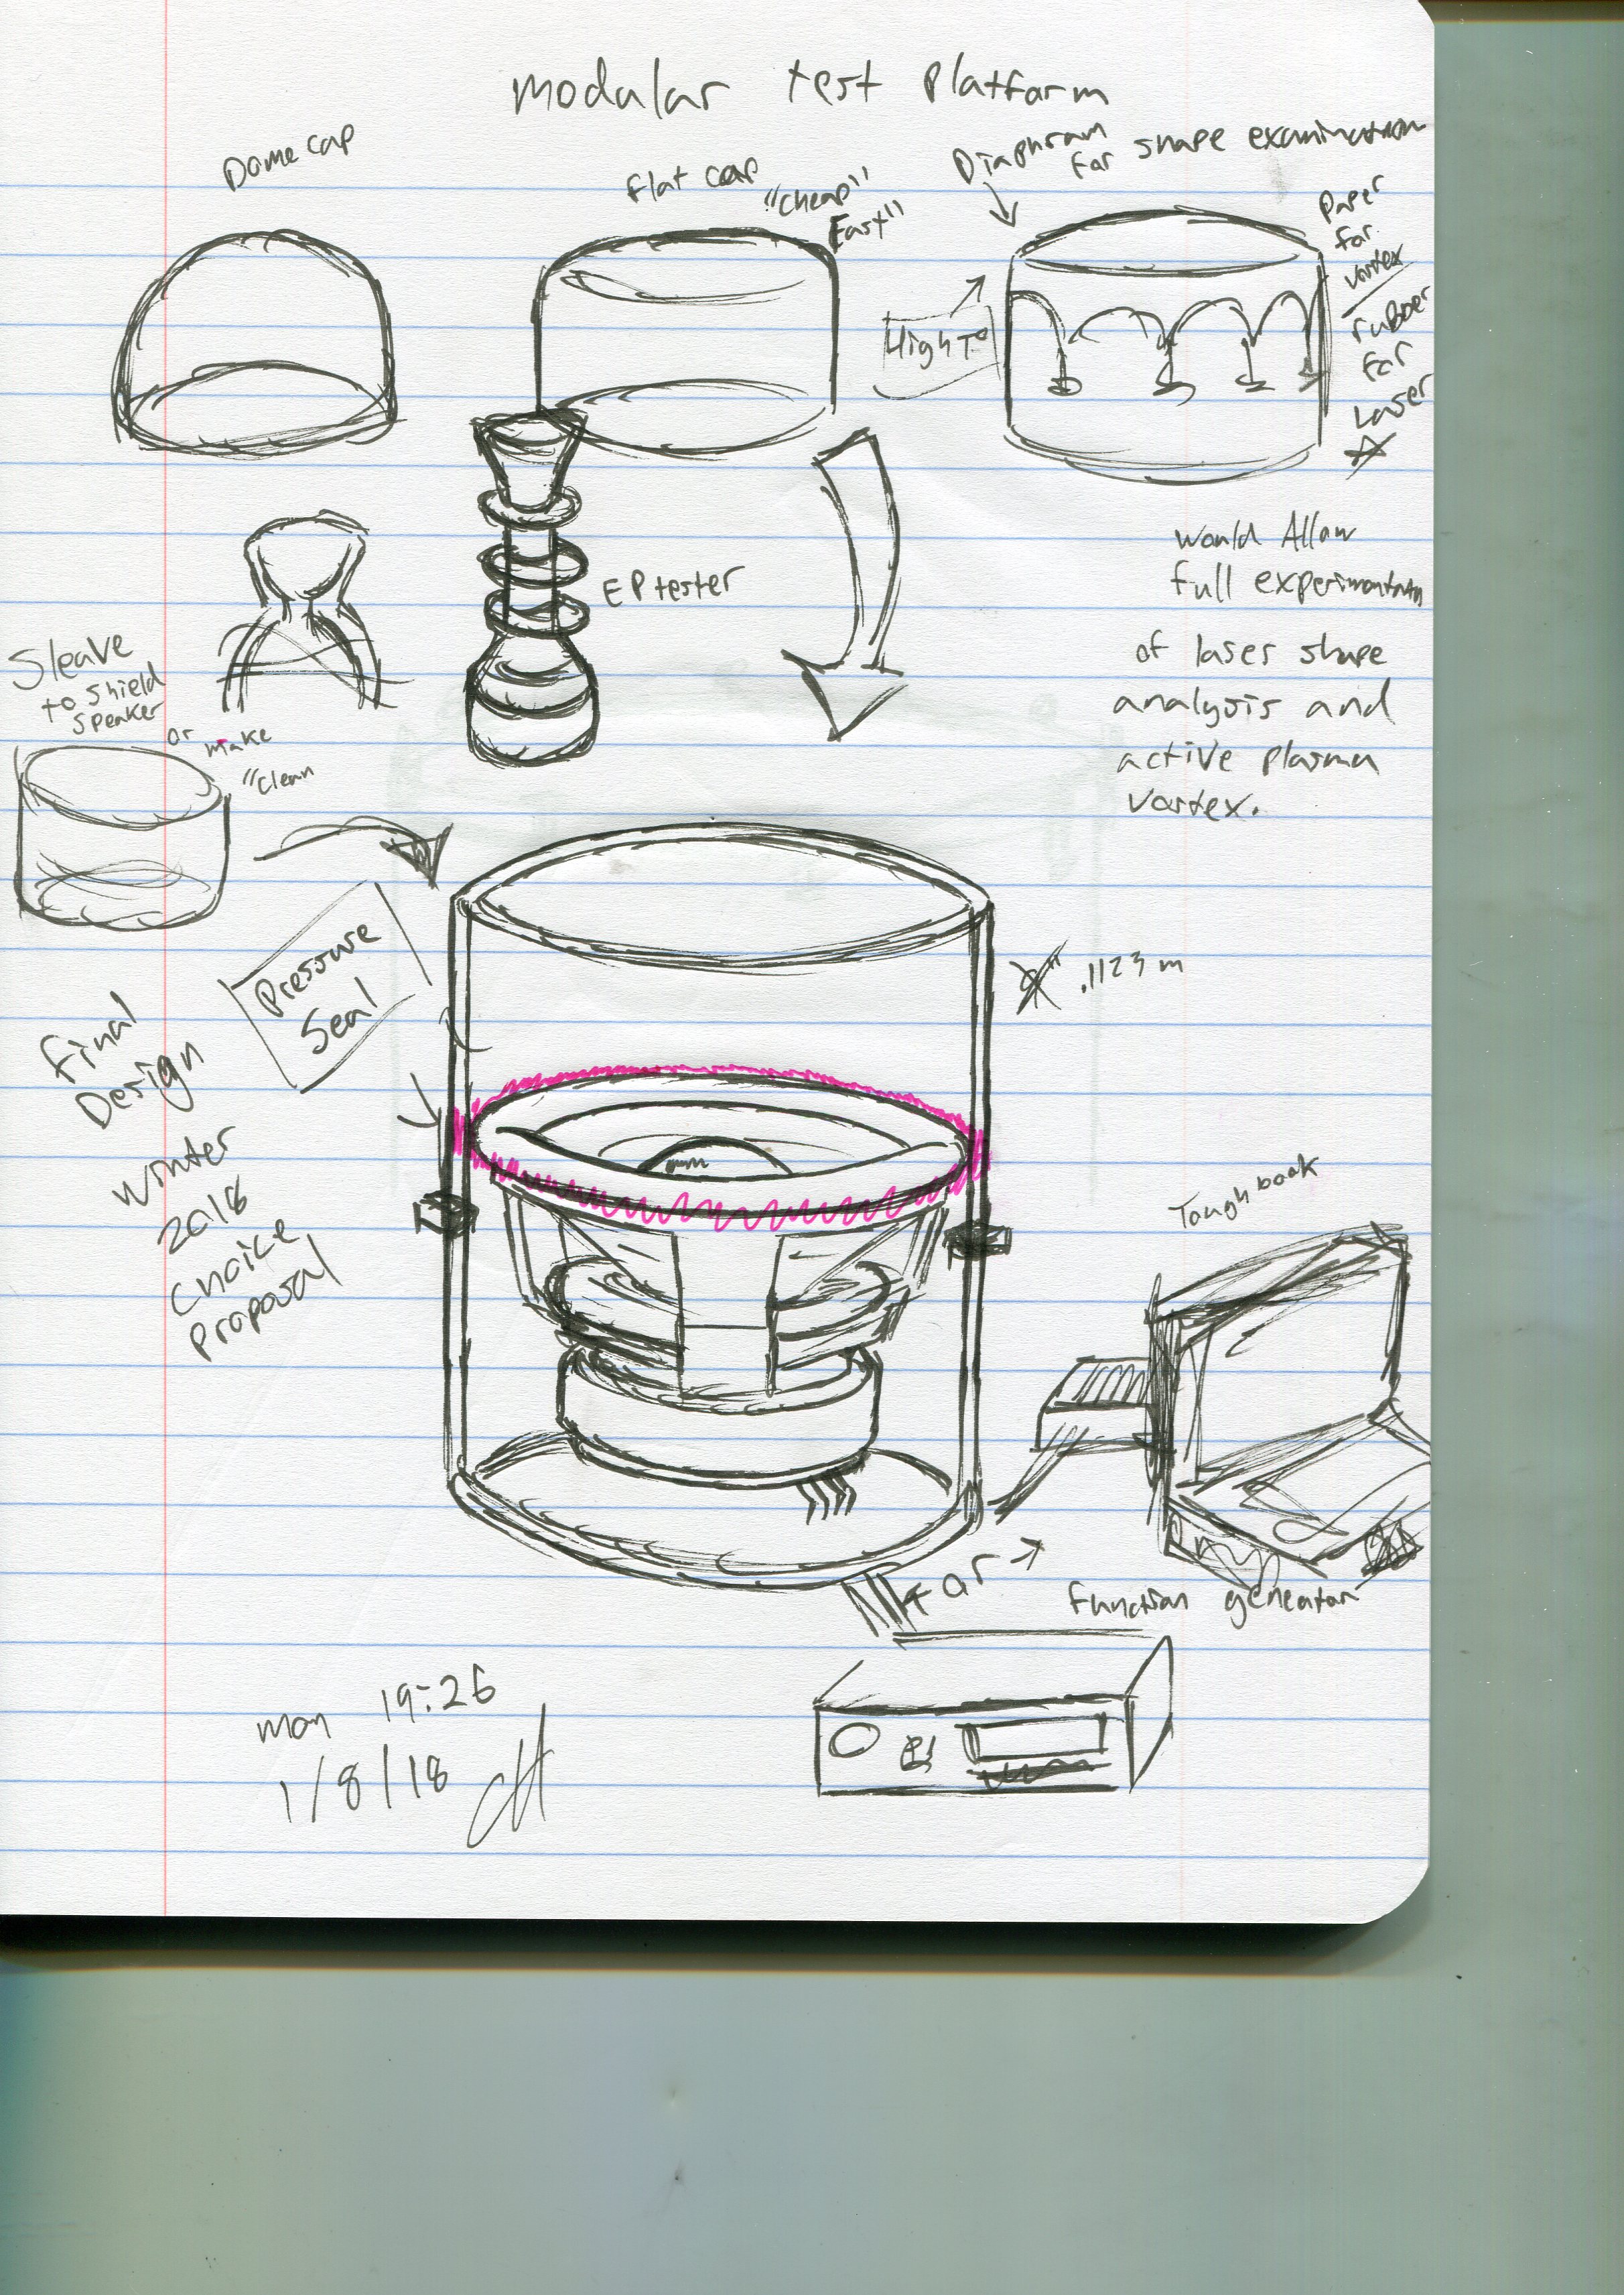 modular test platform
Dome cap
flat cap
"Cheap"
Easy"
Diaphram
for shape examination
Paper
for
vortex
rubber
for
Laser
High T
EP tester
would Allow
full experimentatn
of laser shape
analysis and
active plasma
vortex.
Sleave
to shield
speaker
or make
"clean
Pressure
Seal
.1123 m
final
Design
winter
2018
choice
proposal
Toughbook
or →
function generator
mon 19:26
1/8/18